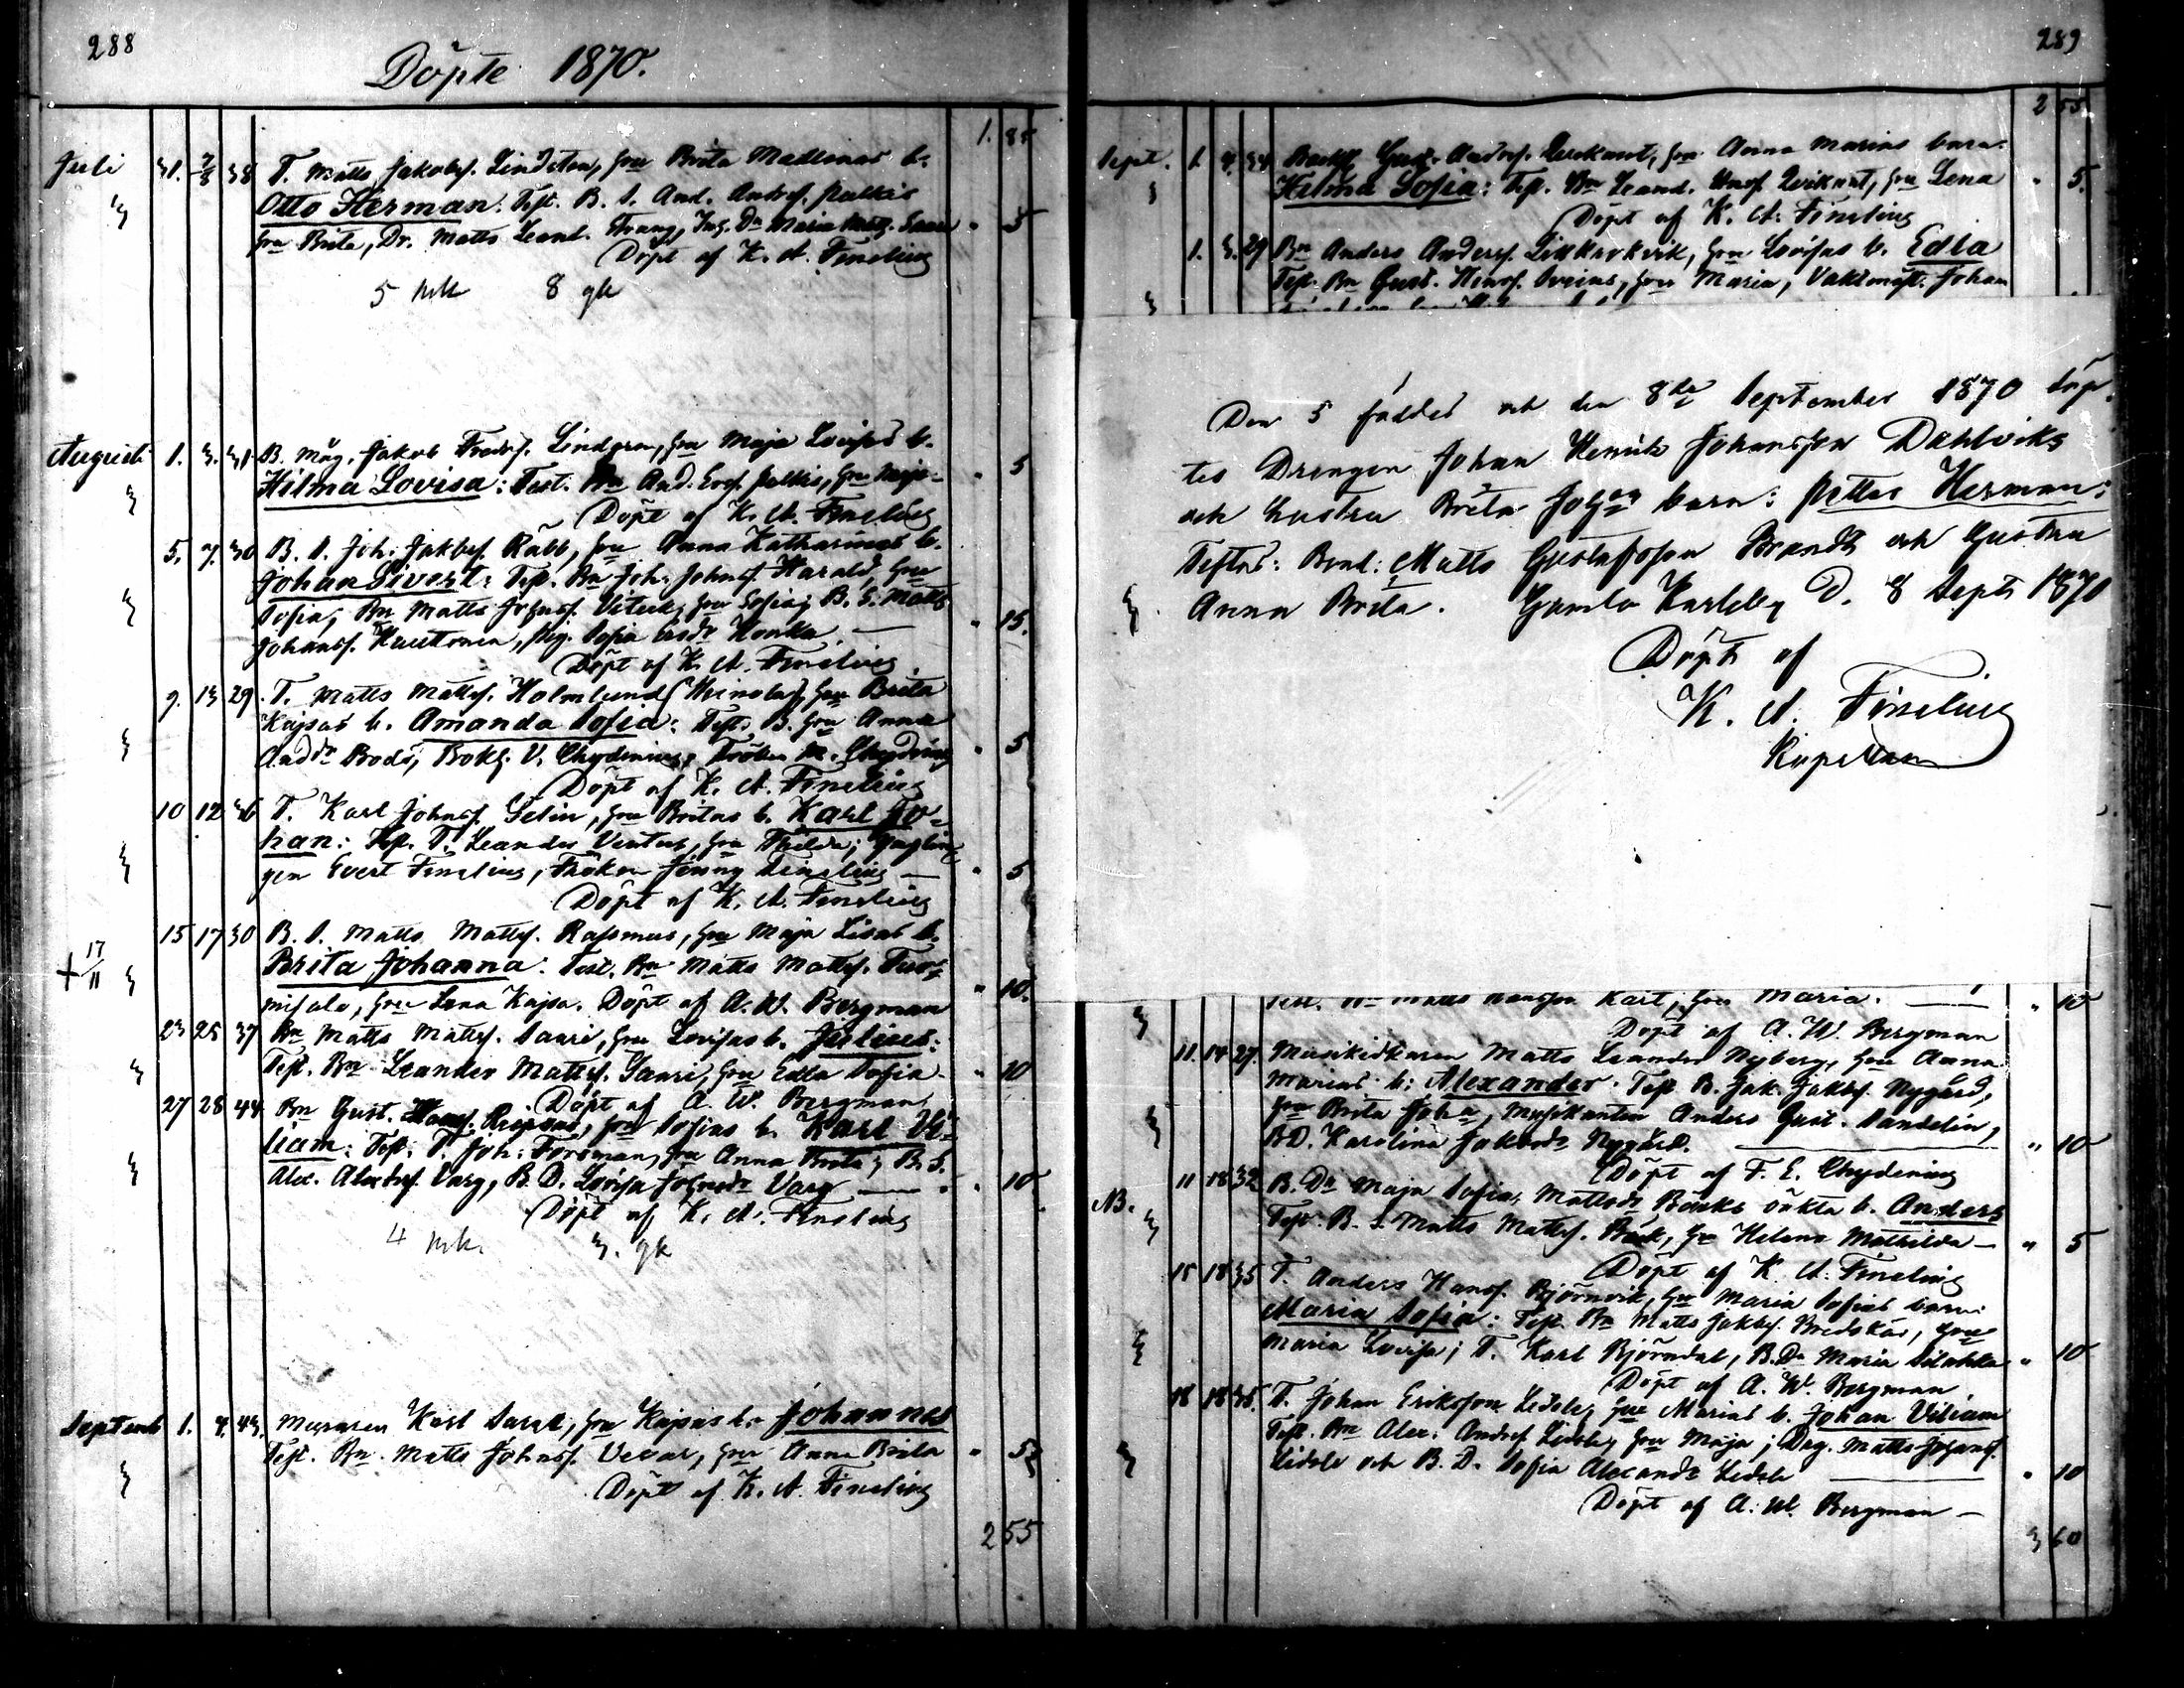 288
Döpte 1870.
1. 85
Juli 31. 7/8 38 T. Matts Jakobss. Lindsten, hru Brita Madlenas b.
Otto Herman: Test. B. S. And. Anderss. Palkis
hru Brita, Dr. Matts Leand. Strang, Dr Maria Saari " 5
Döpt af K. A. Finelius
5 mk 8 gk
Augusti 1. 3. 31. B. måg. Jakob Lindgren, hru Maja Lovisas b.
Hilma Lovisa: Test. Bn And. Palkis, hru Maja " 5
Döpt af K. A. Finelius
5. 7. 30 B. S. Joh. Jakbss. Rabb, hru Anna Katharinas b.
Johan Sivert: Test. Bn Joh. Johnss. Harald, hru
Sofia; Bn Matts Johnss. hru Sofia; B. S. Matts
Johanss. Sofia Honka. — " 15.
Döpt af K. A. Finelius.
9. 13 29. T. Matts Mattss. Holmlund (Heinola), hru Brita
Kajsas b. Amanda Sofia: Test. B. hru Anna
Andr Bodö, Bokh. V. Chydenius, Fröken M. Chydenius " 5
Döpt af K. A. Finelius
10 12 36 T. Karl Johnss. Selin, hru Britas b. Karl Jo-
han: Test. T. Leander Ventus, hru Thilda; Yngling
gen Evert Finelius, Fröken Jenny Finelius — " 5
Döpt af K. A. Finelius
15 17 30 B. S. Matts Mattss. Rassmus, hru Maja Lisas b.
+ 17/11 Brita Johanna: Test. Bn Matts Mattss.
hru Lena Kajsa. Döpt af A. W. Bergman " 10.
23 25 37 Bn Matts Mattss. Saari, hru Lovisas b. Julius:
Test. Bn Leander Mattss. Saari, hru Edla Sofia " 10
Döpt af A. W. Bergman
27 28 44 Bn Gust. hru Sofias b. Karl Vi-
liam: Test. T. Joh. Forsman, hru Anna Brita; B. S.
Alex. Alexdss. Varg, B. D. Lovisa Johnsdr Varg — " 10
Döpt af K. A. Finelius
4 mk. 3. gk
Septemb 1. 4. 43. Muraren Karl hru Kajsas b. Johannes
Test. Bn Matts Johnss. Vevar, hru Anna Brita " 5
Döpt af K. A. Finelius
2 55
289
2 55
Sept. 1. 4. 34 Gust. Anderss. hru Anna Marias barn
Hilma Sofia: Test. Bn Leand. hru Lena " 5.
Döpt af K. A. Finelius
1. 3. 29 Bn Anders Anderss. hru Lovisas b. Edla
Test. Bn Gust. Henrss. hru Maria, Vaktmäst. Johan
Den 5 föddes och den 8de September 1870 döp-
tes Drengen Johan Henrik Johansson Dahlviks
och hustru Brita Johans barn: Petter Herman:
Testes: Bond: Matts Gustafsson Brandt och hustru
Anna Brita. Gamla Karleby D. 8 Sept 1870
Döpt af
K. A. Finelius
Kapellan
Test. Bn Matts Hansson Kait, hru Maria. — " 10
Döpt af A. W. Bergman
11. 14 27. Musikidkaren Matts Leander Nyberg, hru Anna
Marias b: Alexander. Test. B. Jak. Jakbss. Nygård,
hru Brita Joha, Musikanten Anders Gust. Sandelin,
B. D. Karolina Jakobsdr Nygård. — " 10
Döpt af F. E. Chydenius
11 18 32 B. Dr Maja Sofia Mattsdr Bäcks oäkta b. Anders
NB. Test. B. S. Matts Mattss. Bäck, hru Helena Mathilda — " 5
Döpt af K. A. Finelius
15 18 35 T. Anders Hanss. Björnvik, hru Maria Sofias barn
Maria Sofia: Test. Bn Matts Jakbss. Bredskär, hru
Maria Lovisa; T. Karl Björndal, B. Dr Maria " 10
Döpt af A. W. Bergman.
18 18 35. T. Johan Eriksson Lidsle, hru Marias b. Johan Viliam
Test. Bn Alex. Anderss Lidsle, hru Maja; Drg. Matts Johanss.
Lidsle och B. D. Sofia Alexandr Lidsle — " 10
Döpt af A. W. Bergman —
3 60